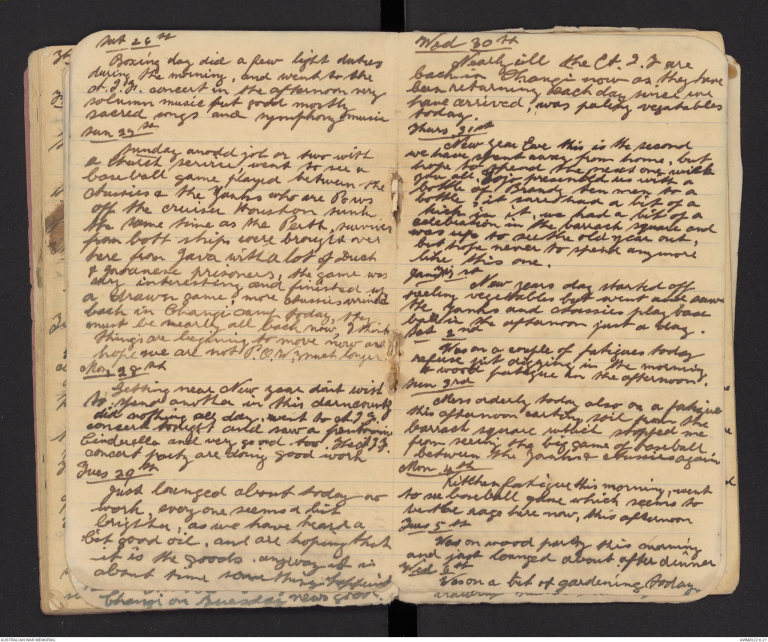 Sat 26th
Boxing day did a few light duties
during the morning, and went to the
A.I.F. concert in the afternoon very
solumn music but good mostly
sacred songs and symphony music
Sun 27th
Sunday anodd job or two with
a church service, went to see a
baseball game played between the
Aussies & the Yanks who are Pows
off the cruiser Houston sunk
the same time as the Perth, survivers
from both ships were brought over
here from Java with a lot of Duch
& Javanese prisoners, the game was
very interesting and finished up
a drawn game, more Aussies arrived
back in Changi camp today, they
must be nearly all back now I think
things are begening to move now and
hope we are not P.O.W.s much longer
Mon 28th
Getting near New year dont wish
to spend another in this darn county
did nothing all day, went to A.I.F
concert tonight and saw a pantomine
Cinderella and very good too. The A.I.F.
concert party are doing good work
Tues 29th
Just lounged about today no
work, everyone seems a bit
brighter, as we have heard a
bit good oil, and are hoping that
it is the goods. anyway it is
about time something happened
Changi on Tuesday news good.
Wed 30th
Nearly all the A.I.F are
back in Changi now as they have
been returning each day since we
have arrived, was pealing vegatables
today.
Thurs 31st
New year Eve this is the second
we have spent away from home, but
hope to spend the next one with
you all, Nips presented us with a
bottle of Brandy ten men to a
bottle, it sure had a bit of a
kick in it, we had a bit of a
celebration in the barrack square and
was up to see the old year out,
but hope never to spend anymore
like this one.
Jan 1st
New years day started off
peeling vegetables but went and saw
the Yanks and Aussies play base
ball in the afternoon just a drag.
Sat 2nd
Was on a couple of fatigues today
refuse pit digging in the morning
& wood fatigue in the afternoon.
Sun 3rd
Mess orderly today also on a fatigue
this afternoon carting soil from the
barrack square which stopped me
from seeing the big game of baseball
between the Yanks & Aussies again
Mon 4th
Kitchen fatigue this morning, went
to see baseball game which seems to
be the rage here now, this afternoon
Tues 5th
Was on wood party this morning
and just lounged about after dinner
Wed 6th
Was on a bit of gardening today
AUSTRALIAN WAR MEMORIAL